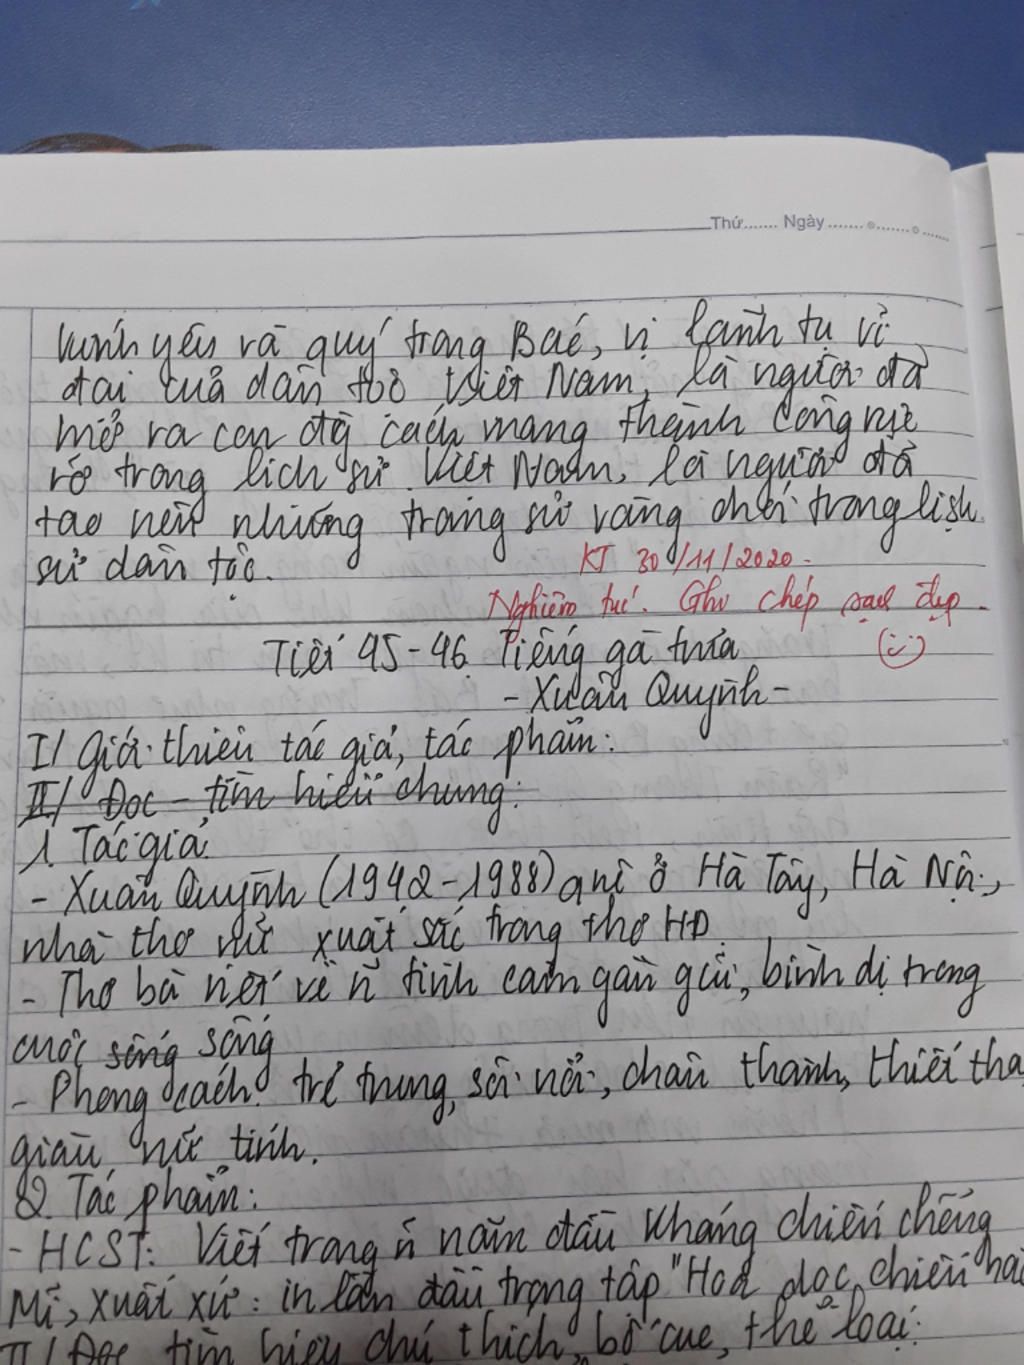 Thứ....... Ngày.......
kính yêu và quý trọng Bác, vị lãnh tụ vĩ
đại của dân tộc Việt Nam, là người đã
mở ra con đg cách mạng thành công rực
rỡ trong lịch sử Việt Nam, là người đã
tạo nên những trang sử vàng chói trong lịch
sử dân tộc.
KT 30/11/2020.
Nghiêm túc. Ghi chép sạch đẹp.
Tiết 45-46 Tiếng gà trưa
- Xuân Quỳnh -
I/ Giới thiệu tác giả, tác phẩm:
II/ Đọc - tìm hiểu chung:
1. Tác giả
- Xuân Quỳnh (1942-1988) quê ở Hà Tây, Hà Nội,
nhà thơ nữ xuất sắc trong thơ HĐ.
- Thơ bà viết về n~ tình cảm gần gũi, bình dị trong
cuộc sống sống
- Phong cách: trẻ trung, sôi nổi, chân thành, thiết tha
giàu nữ tính.
2. Tác phẩm:
- HCST: Viết trong n~ năm đầu kháng chiến chống
Mĩ, xuất xứ: in lần đầu trong tập "Hoa dọc chiến hào
II/ Đọc tìm hiểu chú thích, bố cục, thể loại: